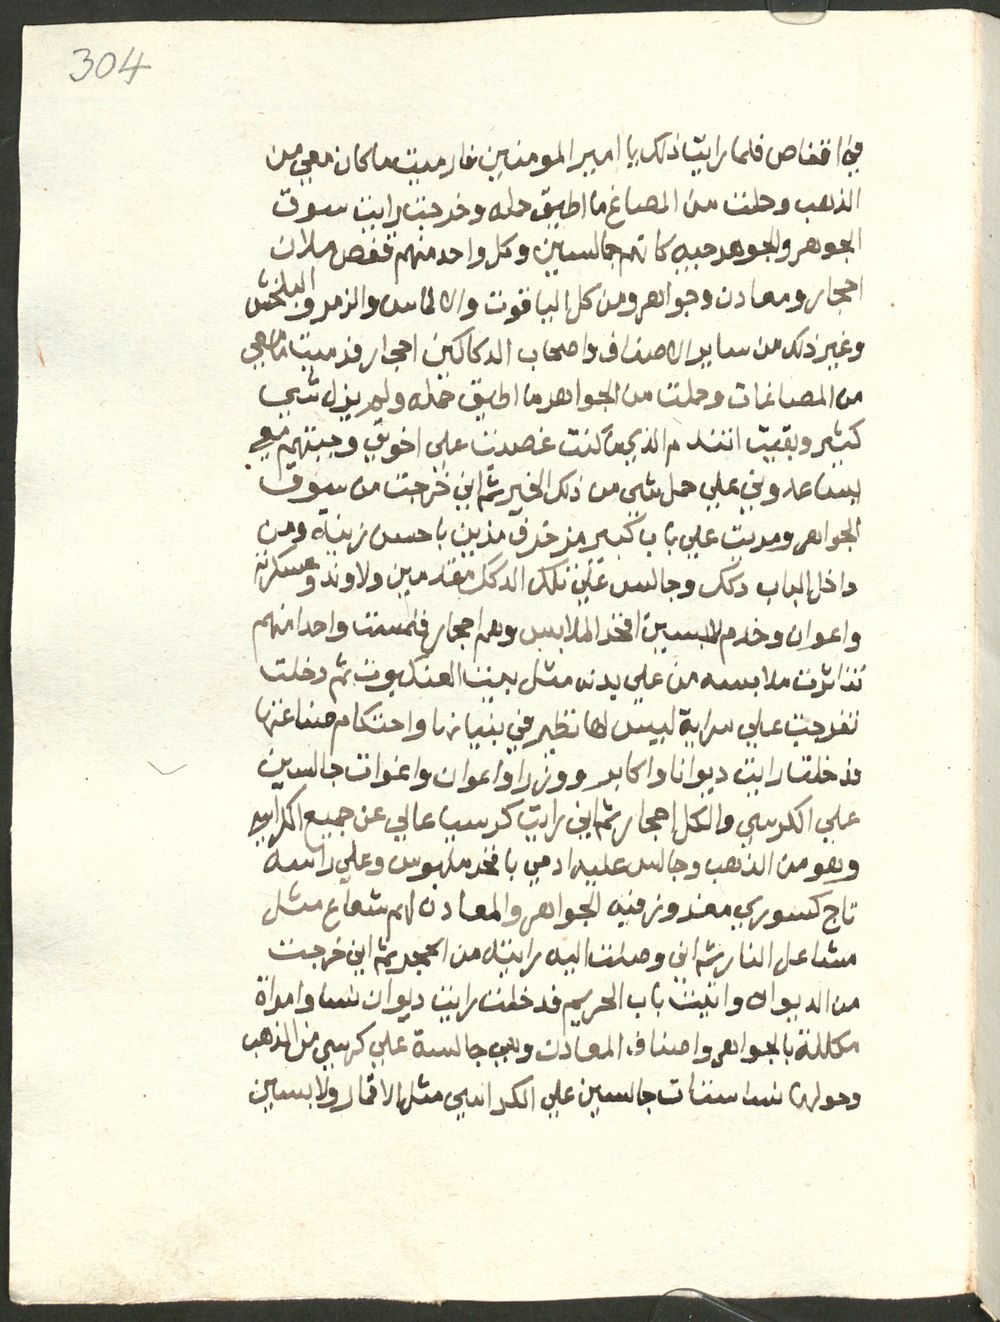 304
في اقفاص فلما رايت ذلك يا امير المومنين فارميت ما كان معي من
الذهب وحملت من المصاغ ما اطيق حمله وخرجت رايت سوق
الجوهر والجوهرجيه كانهم جالسين وكل واحد منهم قفص ملان
احجار ومعادن وجواهر ومن كل الياقوت والالماس والزمرد والبلخش
وغير ذلك من ساير الاصناف واصحاب الدكاكين احجار فرميت ما معي
من المصاغات وحملت من الجواهر ما اطيق حمله ولم يزل شي
كثير وبقيت اتندم الذي ما كنت غصدت علي اخوتي وجبتهم معي
يساعدوني علي حمل شي من ذلك الخير ثم اني خرجت من سوق
الجواهر ومريت علي باب كبير مزخرف مزين باحسن زينة ومن
داخل الباب دكك وجالس علي تلك الدكك مقدمين ولاوند وعسكريه
واعوان وخدم لابسين افخر الملابس وهم احجار فلمست واحدا منهم
تناثرت ملابسه من علي بدنه مثل بيت العنكبوت ثم دخلت
تفرجت علي سراية ليس لها نظير في بنيانها واحتكام صناعتها
فدخلت رايت ديوانا واكابر ووزرا واعوان واغوات جالسين
علي الكرسي والكل احجار ثم اني رايت كرسيا عالي عن جميع الكراسي
وهو من الذهب وجالس عليه ادمي بافخر ملبوس وعلي راسه
تاج كسوري مغدوز فيه الجواهر والمعادن لهم شعاع مثل
مشاعل النار ثم اني وصلت اليه رايته من الحجر ثم اني خرجت
من الديوان واتيت باب الحريم فدخلت رايت ديوان نسا وامراة
مكللة بالجواهر واصناف المعادن وهي جالسة علي كرسي من الذهب
وحولها نسا ستات جالسين علي الكراسي مثل الاقمار ولابسين